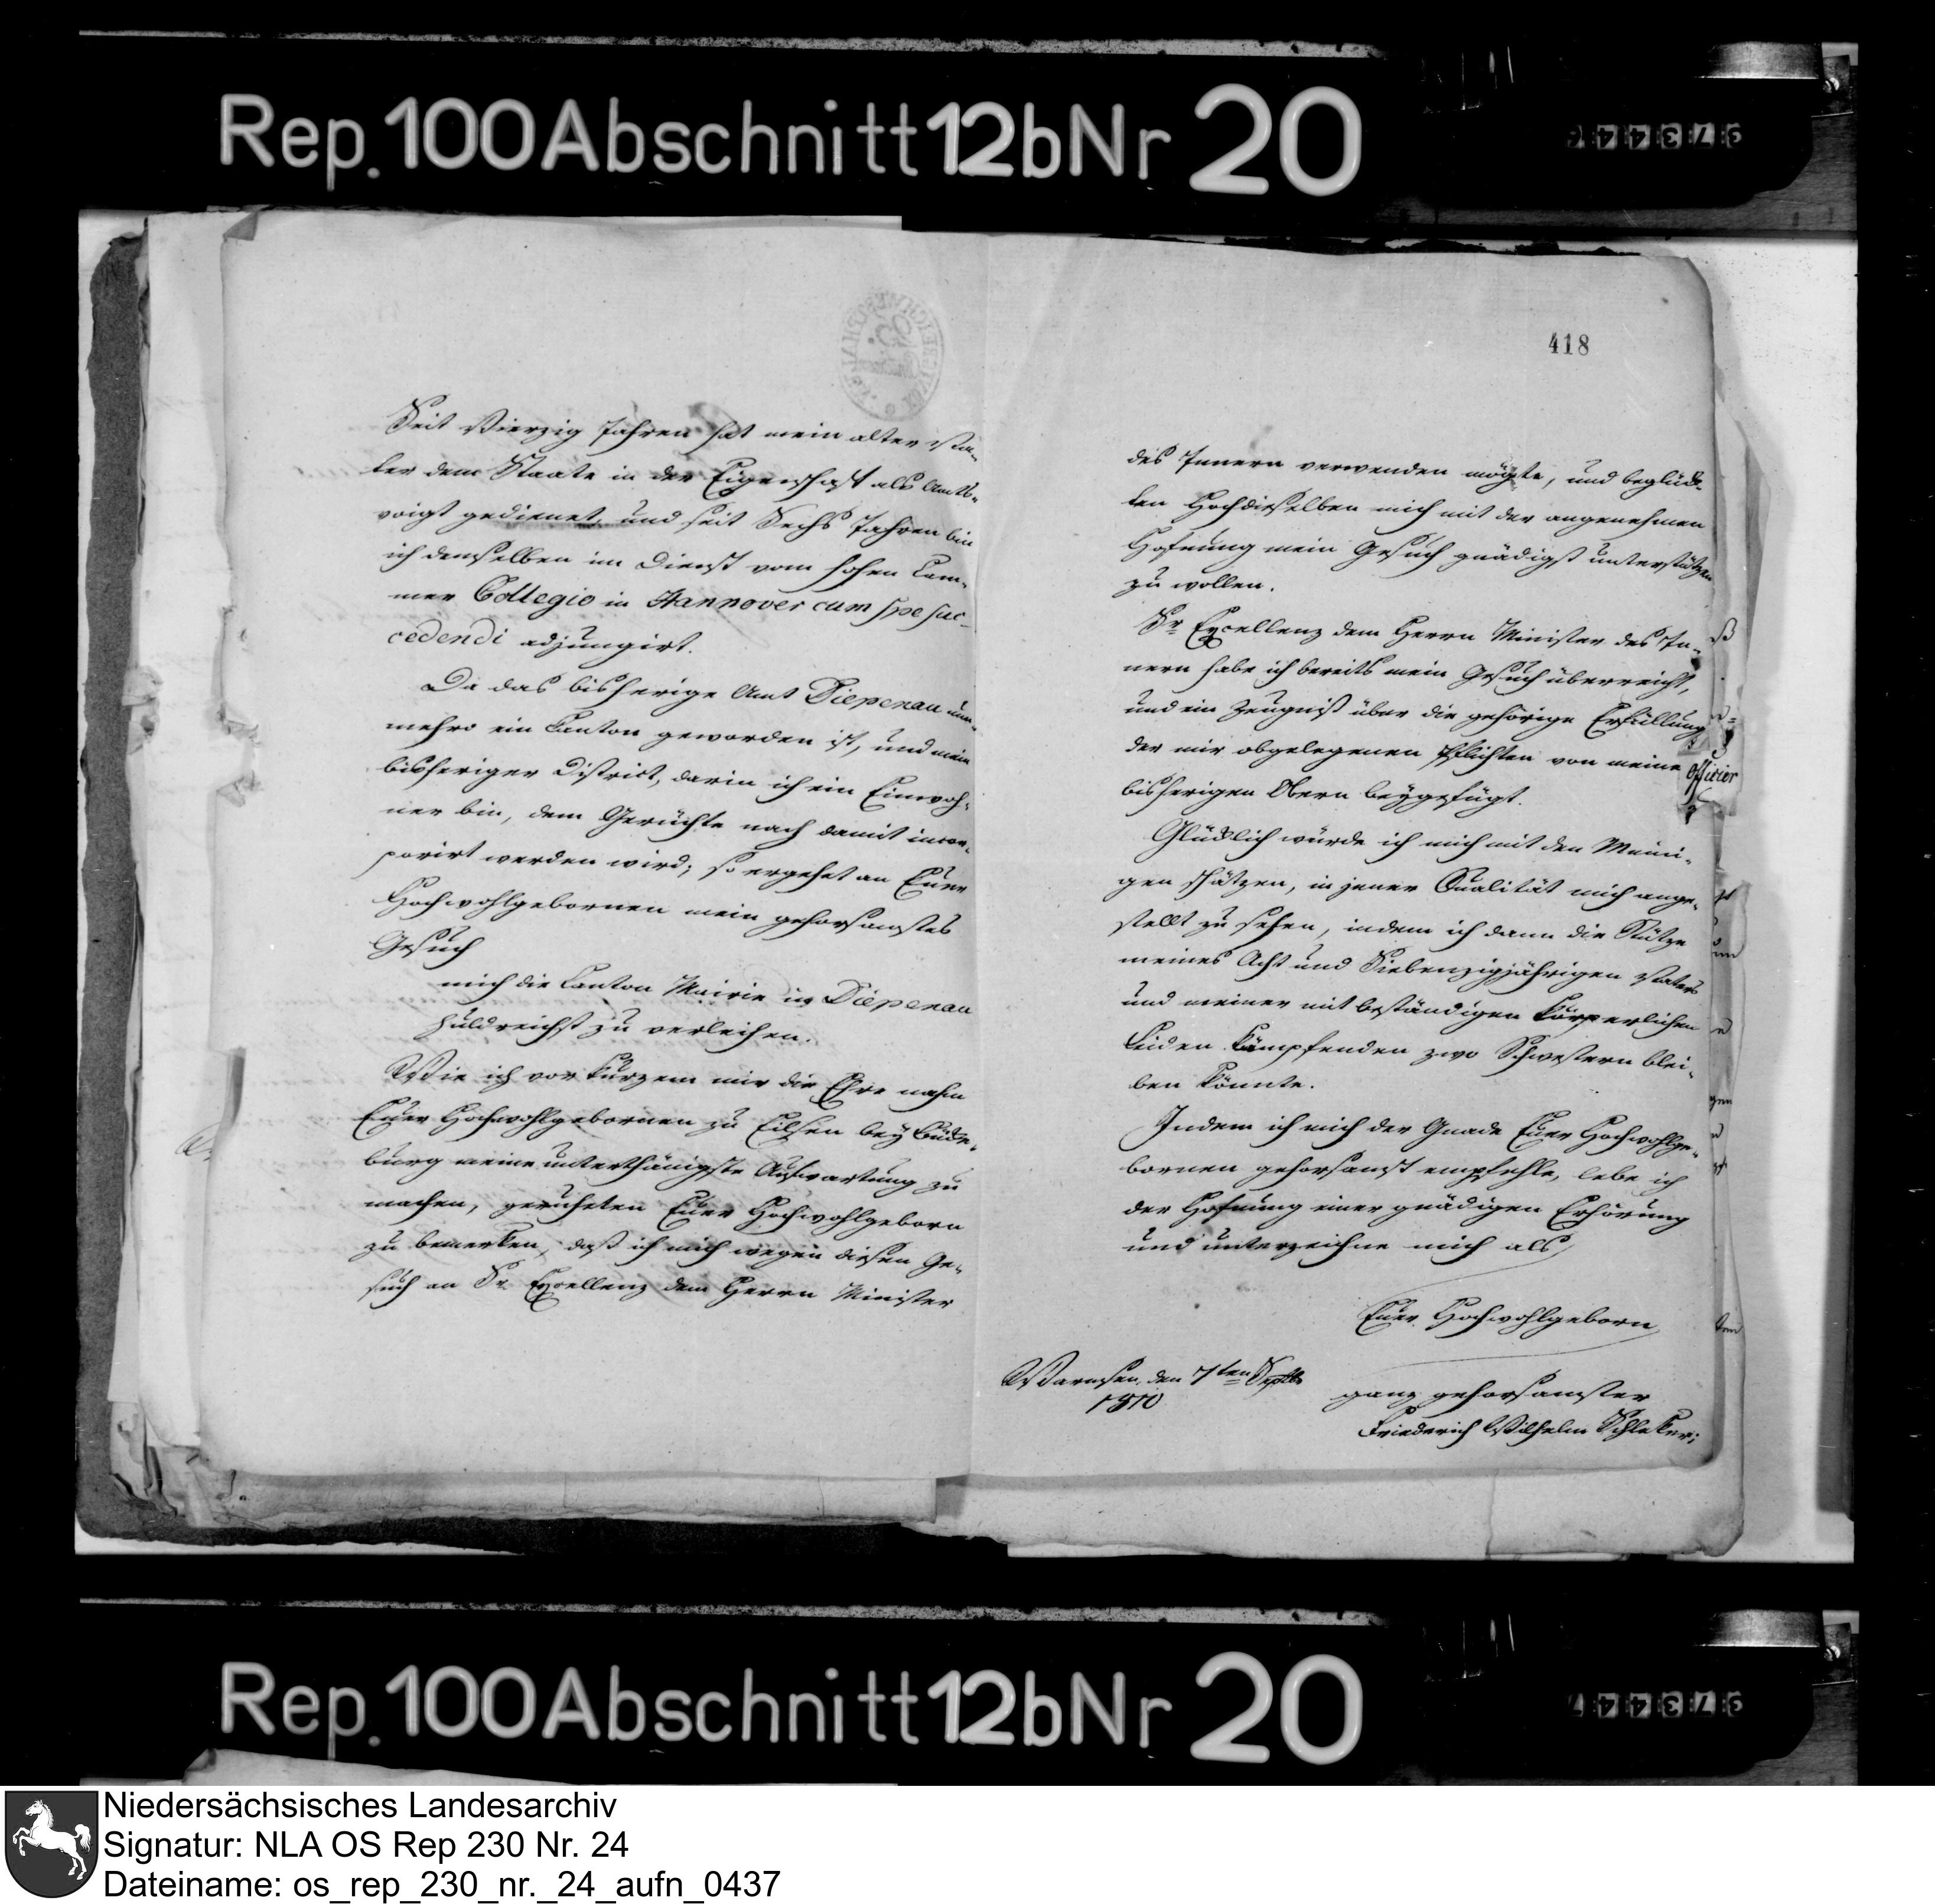 Rep. 100 Abschnitt 12b Nr 20
418
Seit Vierzig Jahren hat mein alter Va-
ter dem Staate in der Eigenschaft als Amts-
voigt gedienet, und seit Sechs Jahren bin
ich demselben im Dienst vom hohen Cam-
mer Collegio in Hannover cum spe suc-
cedendi adjungirt.
Da das bisherige Amt Diepenau nun-
mehro ein Canton geworden ist, und mein
bisheriger District, darin ich ein Einwoh-
ner bin, dem Gerüchte nach damit incor-
porirt werden wird; so ergehet an Euer
Hochwohlgebornen mein gehorsamstes
Gesuch
mich die Canton Mairie in Diepenau
huldreichst zu verleihen.
Wie ich vor kurzem mir die Ehre nahm
Euer Hochwohlgebornen zu Eilsen bey Bücke-
burg meine unterthänigste Aufwartung zu
machen, geruheten Euer Hochwohlgeborn
zu bemerken, daß ich mich wegen diesen Ge-
such an Sr. Excellenz dem Herrn Minister
des Innern verwenden mögte, und beglück-
ten Hochdieselben mich mit der angenehmen
Hofnung mein Gesuch gnädigst unterstützen
zu wollen.
Sr. Excellenz dem Herrn Minister des In-
nern habe ich bereits mein Gesuch überreicht,
und ein Zeugniß über die gehörige Erfüllung
der mir obgelegenen Pflichten von meine
officier
bisherigen Obern beygefügt.
Glücklich würde ich mich mit den Meini-
gen schätzen, in jener Qualität mich ange-
stellt zu sehen, indem ich dann die Stütze
meines Acht und Siebenzigjährigen Vaters
und meiner mit beständigen Körperlichen
Leiden kämpfenden zwo Schwestern blei-
ben könnte.
Indem ich mich der Gnade Euer Hochwohlge-
bornen gehorsamst empfehle, lebe ich
der Hofnung einer gnädigen Erhörung
und unterzeichne mich als
Euer Hochwohlgeborn
Warmsen, den 7ten Septbr
1810
ganz gehorsamster
Friederich Wilhelm Schleker;
Rep. 100 Abschnitt 12b Nr 20
Niedersächsisches Landesarchiv
Signatur: NLA OS Rep 230 Nr. 24
Dateiname: os_rep_230_nr._24_aufn_0437